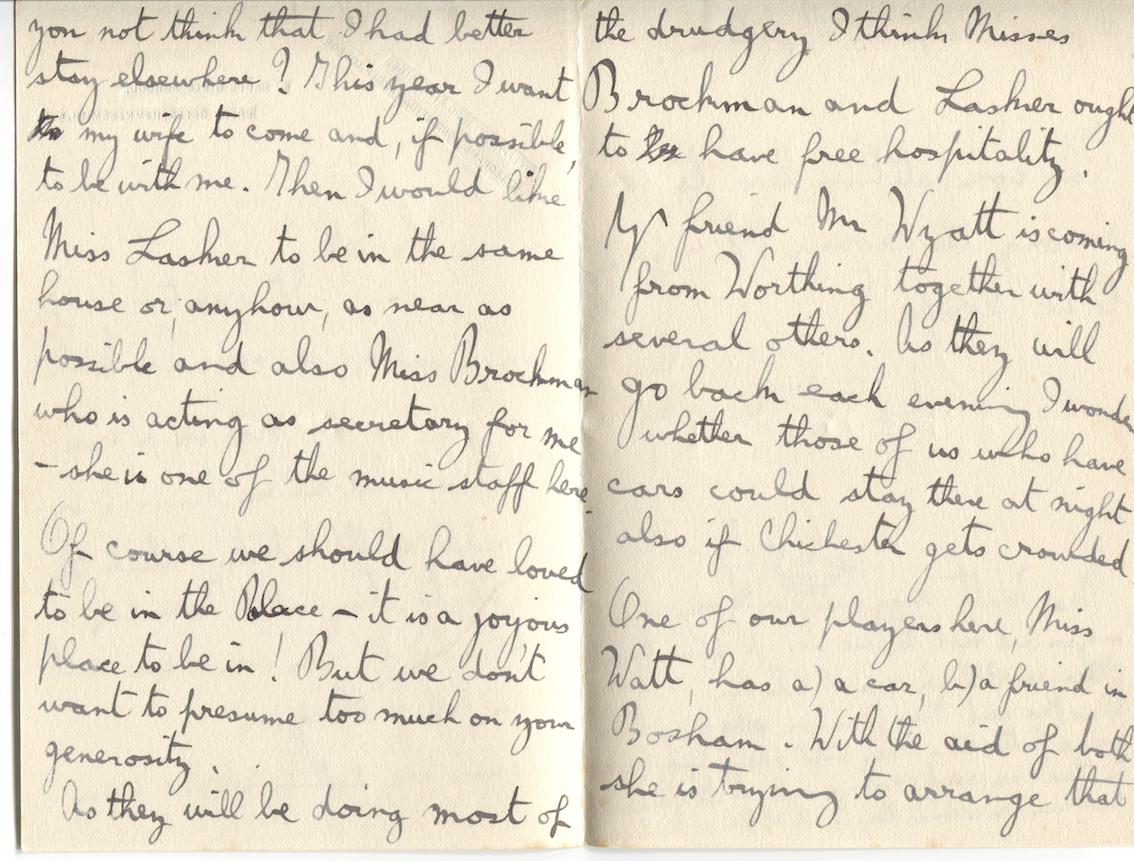 you not think that I had better
stay elsewhere? This year I want
my wife to come and, if possible,
to be with me. Then I would like
Miss Lasker to be in the same
house or, anyhow, as near as
possible and also Miss Brockman
who is acting as secretary for me
– she is one of the music staff here.
Of course we should have loved
to be in the Palace – it is a joyous
place to be in! But we don't
want to presume too much on your
generosity.
As they will be doing most of
the drudgery I think Misses
Brockman and Lasker ought
to have free hospitality.
My friend Mr Wyatt is coming
from Worthing together with
several others. As they will
go back each evening I wonder
whether those of us who have
cars could stay there at night
also if Chichester gets crowded
One of our players here, Miss
Watt, has a) a car, b) a friend in
Bosham. With the aid of both
she is trying to arrange that